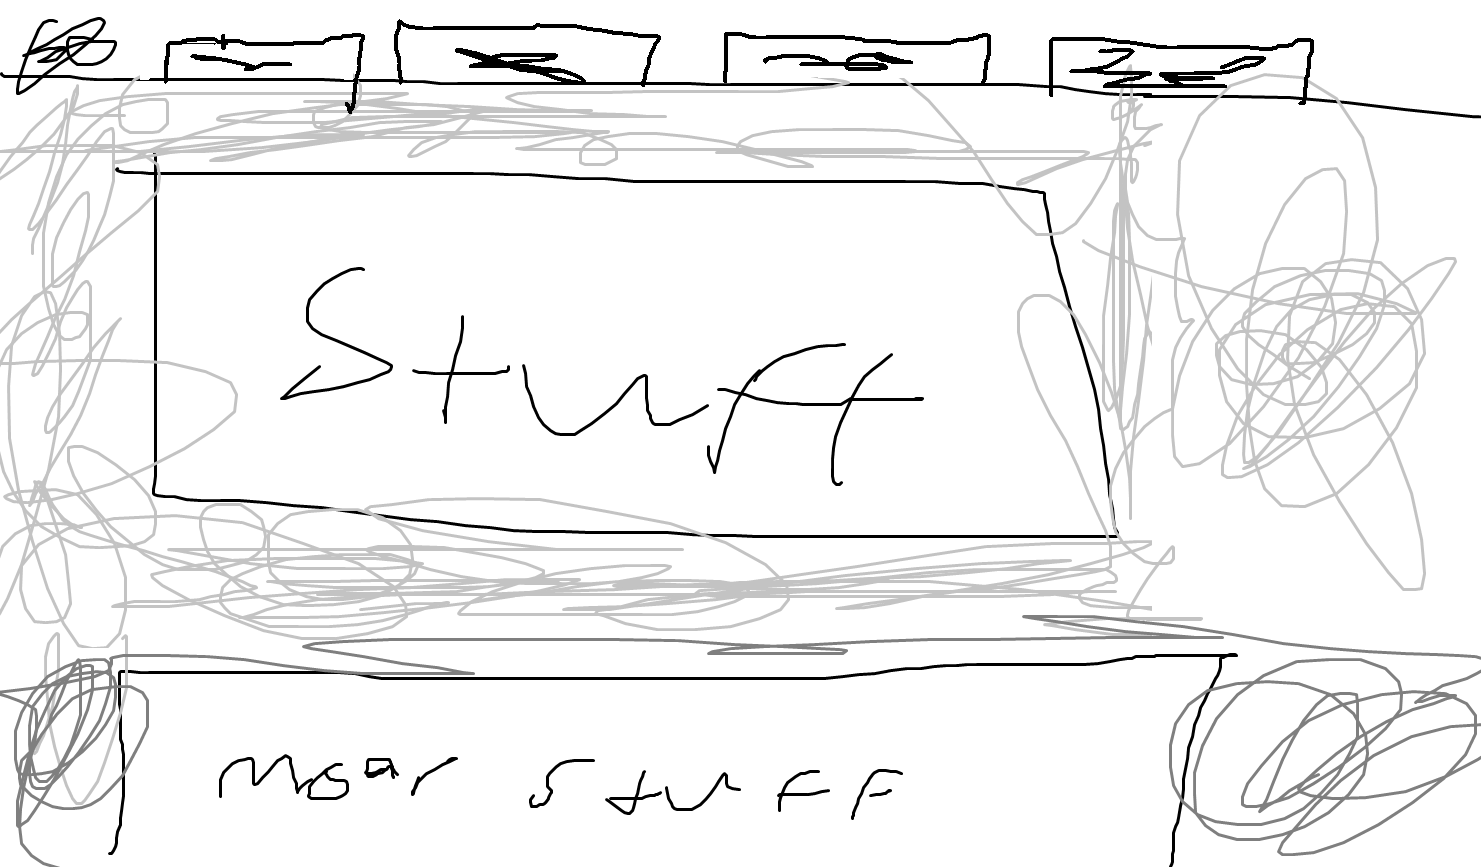 Stuff
moar stuff